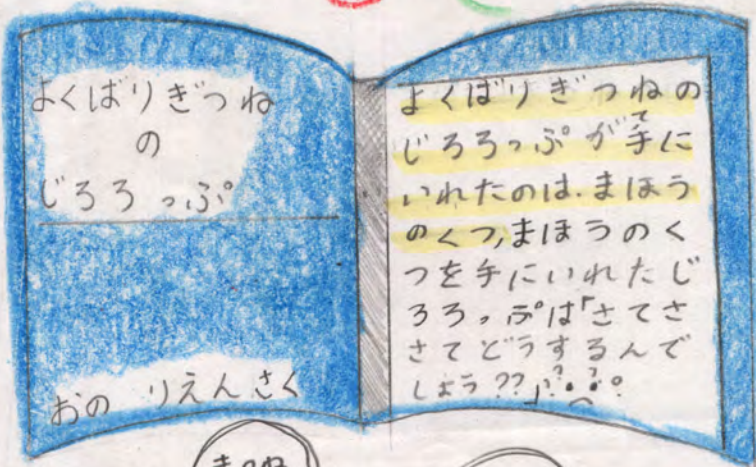 よくばりぎつね
の
じろろっぷ
おの りえんさく
よくばりぎつねの
じろろっぷが手に
いれたのは、まほう
のくつ,まほうのく
つを手にいれたじ
ろろっぷは「さてさ
さてどうするんで
しょう??」